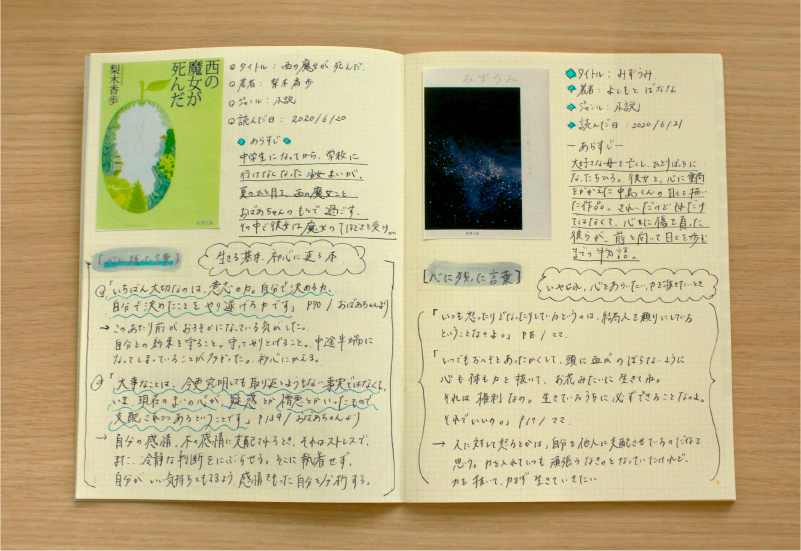 西の
魔女が
死んだ
梨木香歩
新潮文庫
タイトル：西の魔女が死んだ
著者：梨木香歩
ジャンル：小説
読んだ日：2020/6/20
あらすじ
中学生になってから、学校に
行けなくなった少女まいが、
夏のひと月を、西の魔女こと
おばあちゃんのもとで過ごす。
その中で彼女は魔女の手ほどきを受け
[心に残った言葉]
生きる基本、初心に返る本
①「いちばん大切なのは、意志の力。自分で決める力、
自分で決めたことをやり遂げる力です」P70/おばあちゃんより
→このあたり前がおろそかになっている気がした。
自分との約束を守ること。守ってやりとげること。中途半端に
なってしまっていることが多かった。初心にかえる。
②「大事なことは、今更究明しても取り返しようもない事実ではなくて、
いま、現在のまいの心が、疑惑とか憎悪とかいったもので
支配されつつあるということです」P139/おばあちゃんより
→自分の感情、不の感情に支配されるとき、それはストレスで、
また、冷静な判断をにぶらせる。そこに執着せず、
自分がいい気持ちともてるよう、感情をもった自分を分析する。
みずうみ
タイトル：みずうみ
著者：よしもとばなな
ジャンル：小説
読んだ日：2020/6/21
ーあらすじー
大好きな母を亡くし、ひとりぼっちに
なったちひろ。彼女と、心に傷
をかかえた中島くんの日々を描い
た作品。きれいだけど それだけ
ではなくて、心に傷を負った
彼らが、前を向いて日々を歩む
までの物語。
[心に残った言葉]
いやされ、心をあらいたい、力を抜きたいとき
「いつも怒ったりどなったりしている人というのは、結局人を頼りにしている
ということなのよ。」P8/ママ
「いつでもへそをあったかくして、頭に血がのぼらないように
心も体も力を抜いて、お花みたいに生きてね。
それは権利なの。生きているうちに必ずできることなのよ。
それでいいの。」P17/ママ
→人に対して怒るとかは、自分を他人に支配させているのだなと
思う。力を入れていつも頑張らなきゃとなっていたけれど、
力を抜いて、力まず生きていきたい